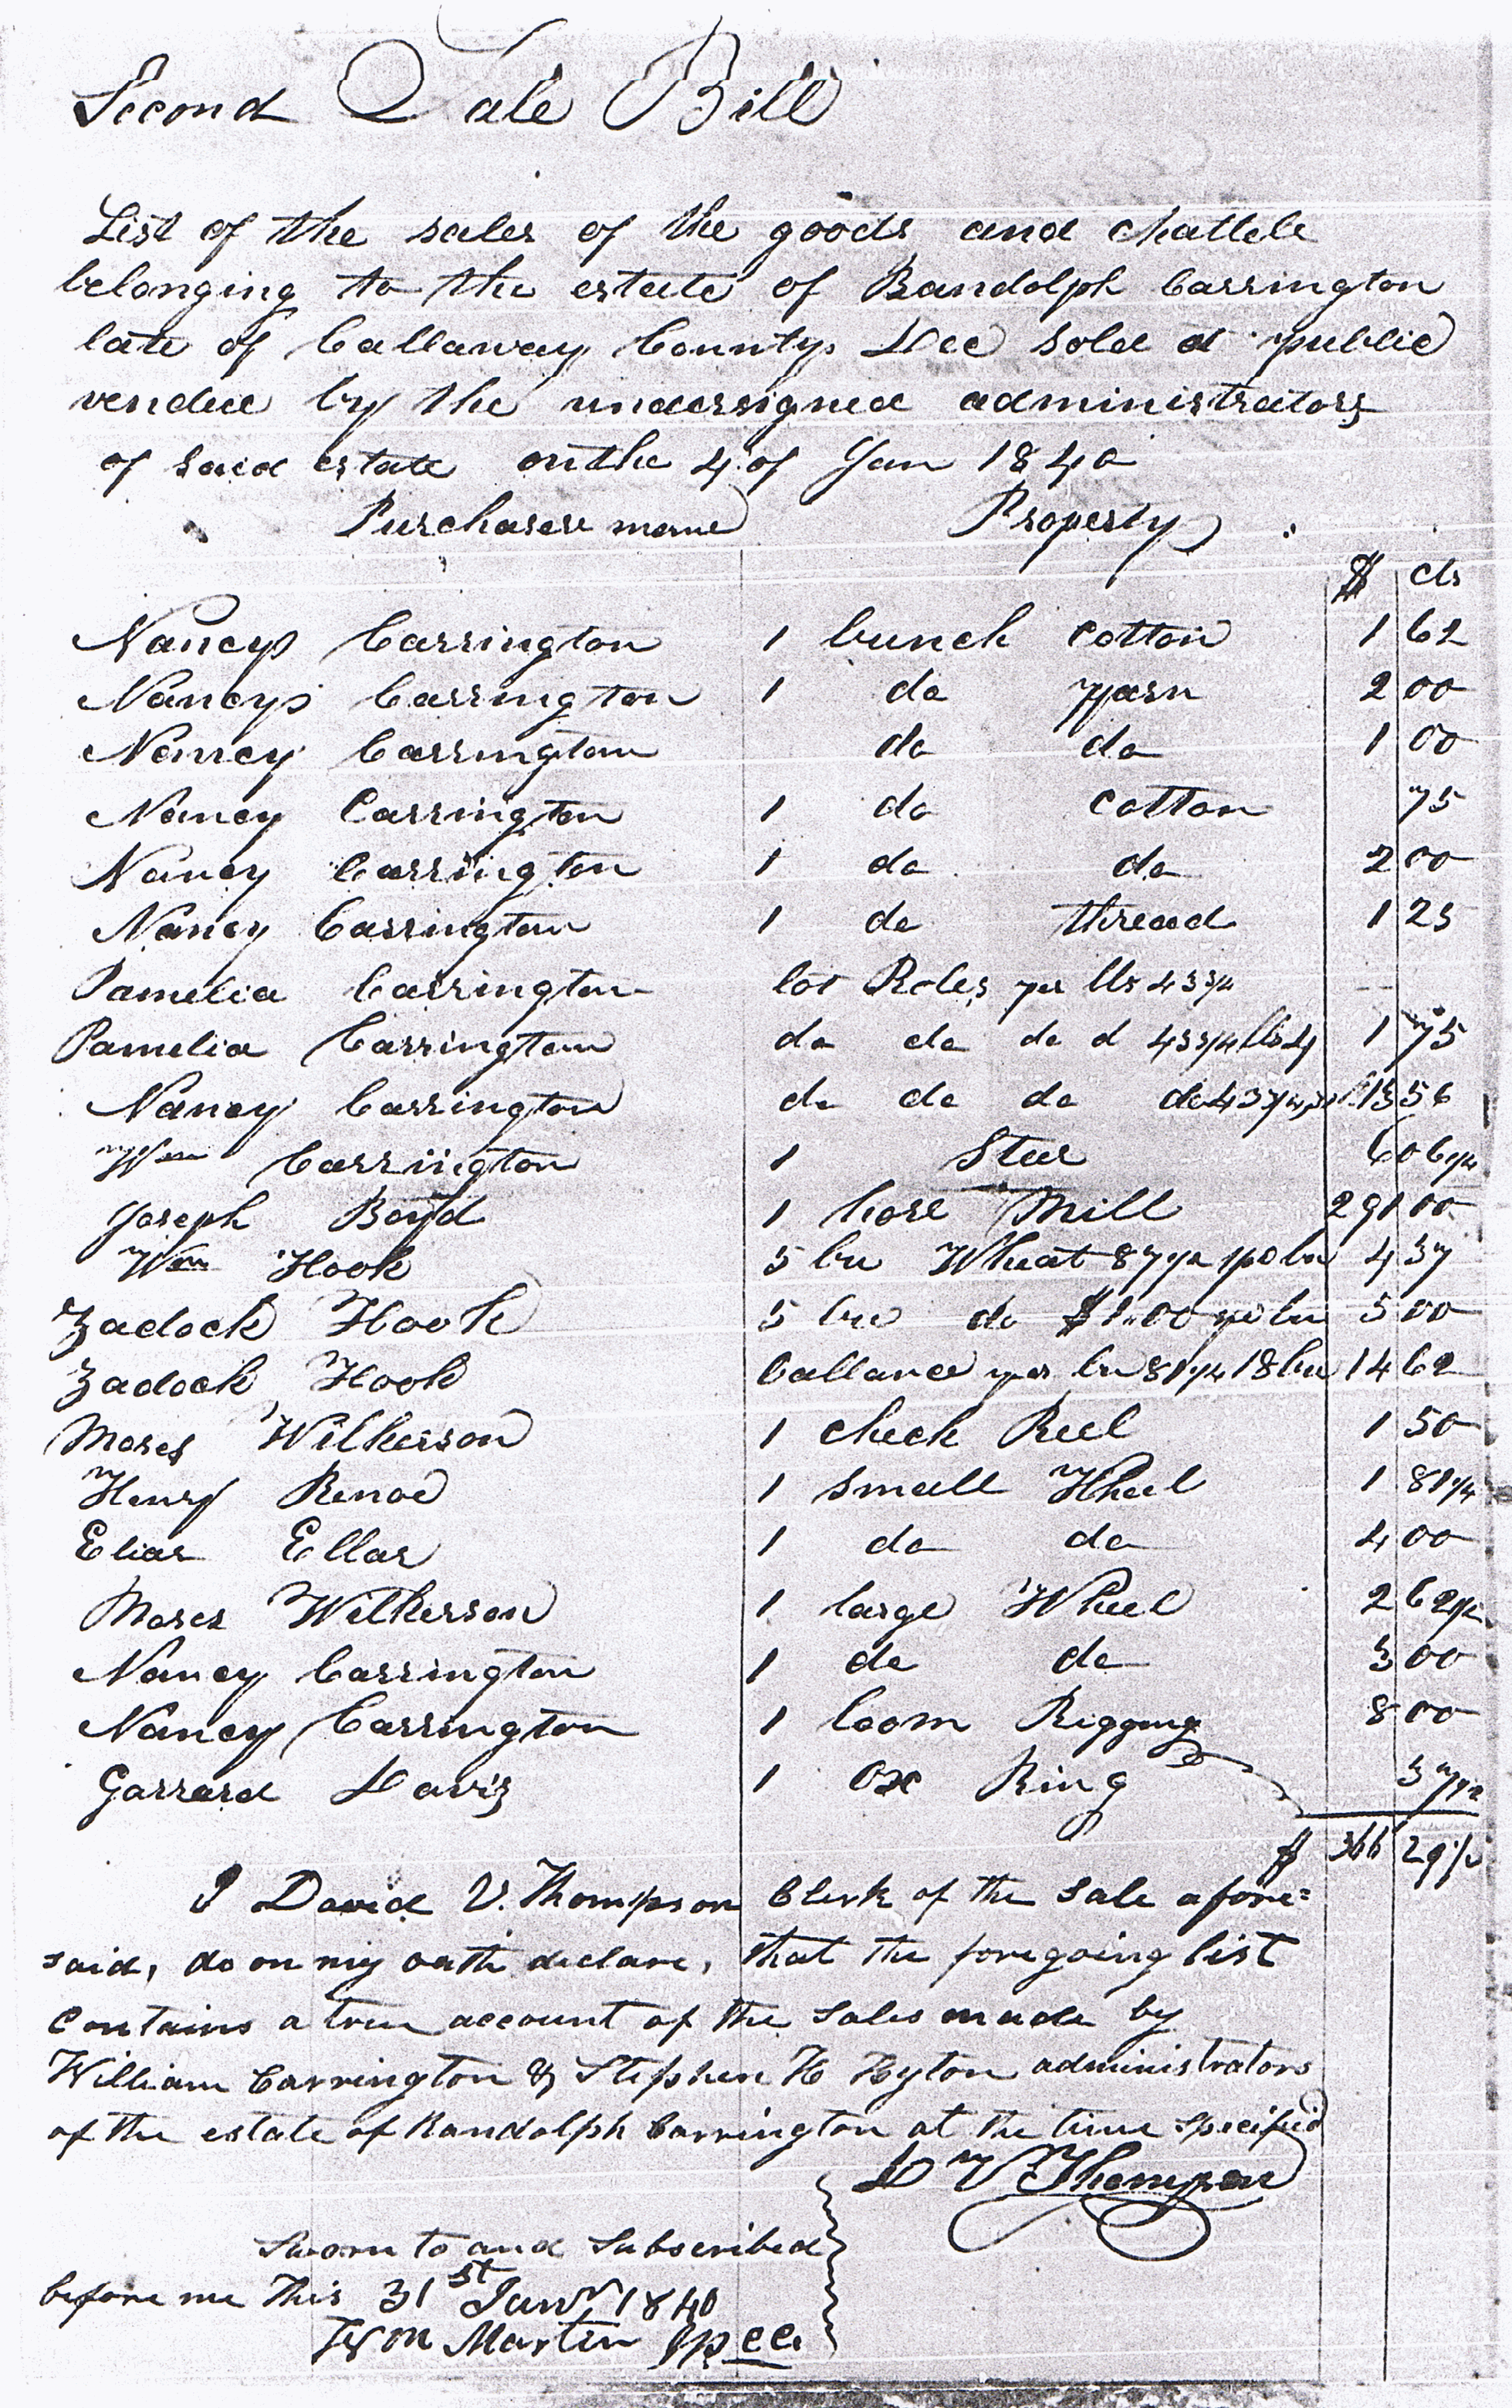 Second Sale Bill
List of the sales of the goods and chattels
belonging to the estate of Randolph Carrington
late of Callaway County Dec sold at public
vendue by the undersigned administrators
of said estate on the 4 of Jan 1840
Purchasers name Property
$ cts
Nancy Carrington 1 bunch Cotton 1 62
Nancy Carrington 1 do yarn 2 00
Nancy Carrington do do 1 00
Nancy Carrington 1 do Cotton 75
Nancy Carrington 1 do do 2 00
Nancy Carrington 1 do thread 1 25
Pamelia Carrington lot Roles per lb 43 3/4
Pamelia Carrington do do do d 43 3/4 lbs 4 1 75
Nancy Carrington do do do do 43 3/4 15 56
Wm Carrington 1 Steer 6 06 1/4
Joseph Boyd 1 hors Mill 291 00
Wm Hook 5 bu Wheat 87 1/2 per bu 4 37
Zadock Hook 5 bu do $1.00 per bu 5 00
Zadock Hook ballance per bu 81 1/4 18 bu 14 62
Moses Wilkerson 1 check Reel 1 50
Henry Renoe 1 small Wheel 1 81 1/4
Elias Ellar 1 do do 4 00
Moses Wilkerson 1 large Wheel 2 62 1/2
Nancy Carrington 1 do do 3 00
Nancy Carrington 1 loom Rigging 8 00
Garrard Davis 1 Ox Ring 37 1/2
$ 366 29 1/2
I David V. Thompson Clerk of the sale afore=
said, do on my oath declare, that the foregoing list
contains a true account of the sales made by
William Carrington & Stephen H Hyton administrators
of the estate of Randolph Carrington at the time specified
D V Thompson
Sworn to and Subscribed
before me this 31st Jany 1840
Wm Martin JPCC.